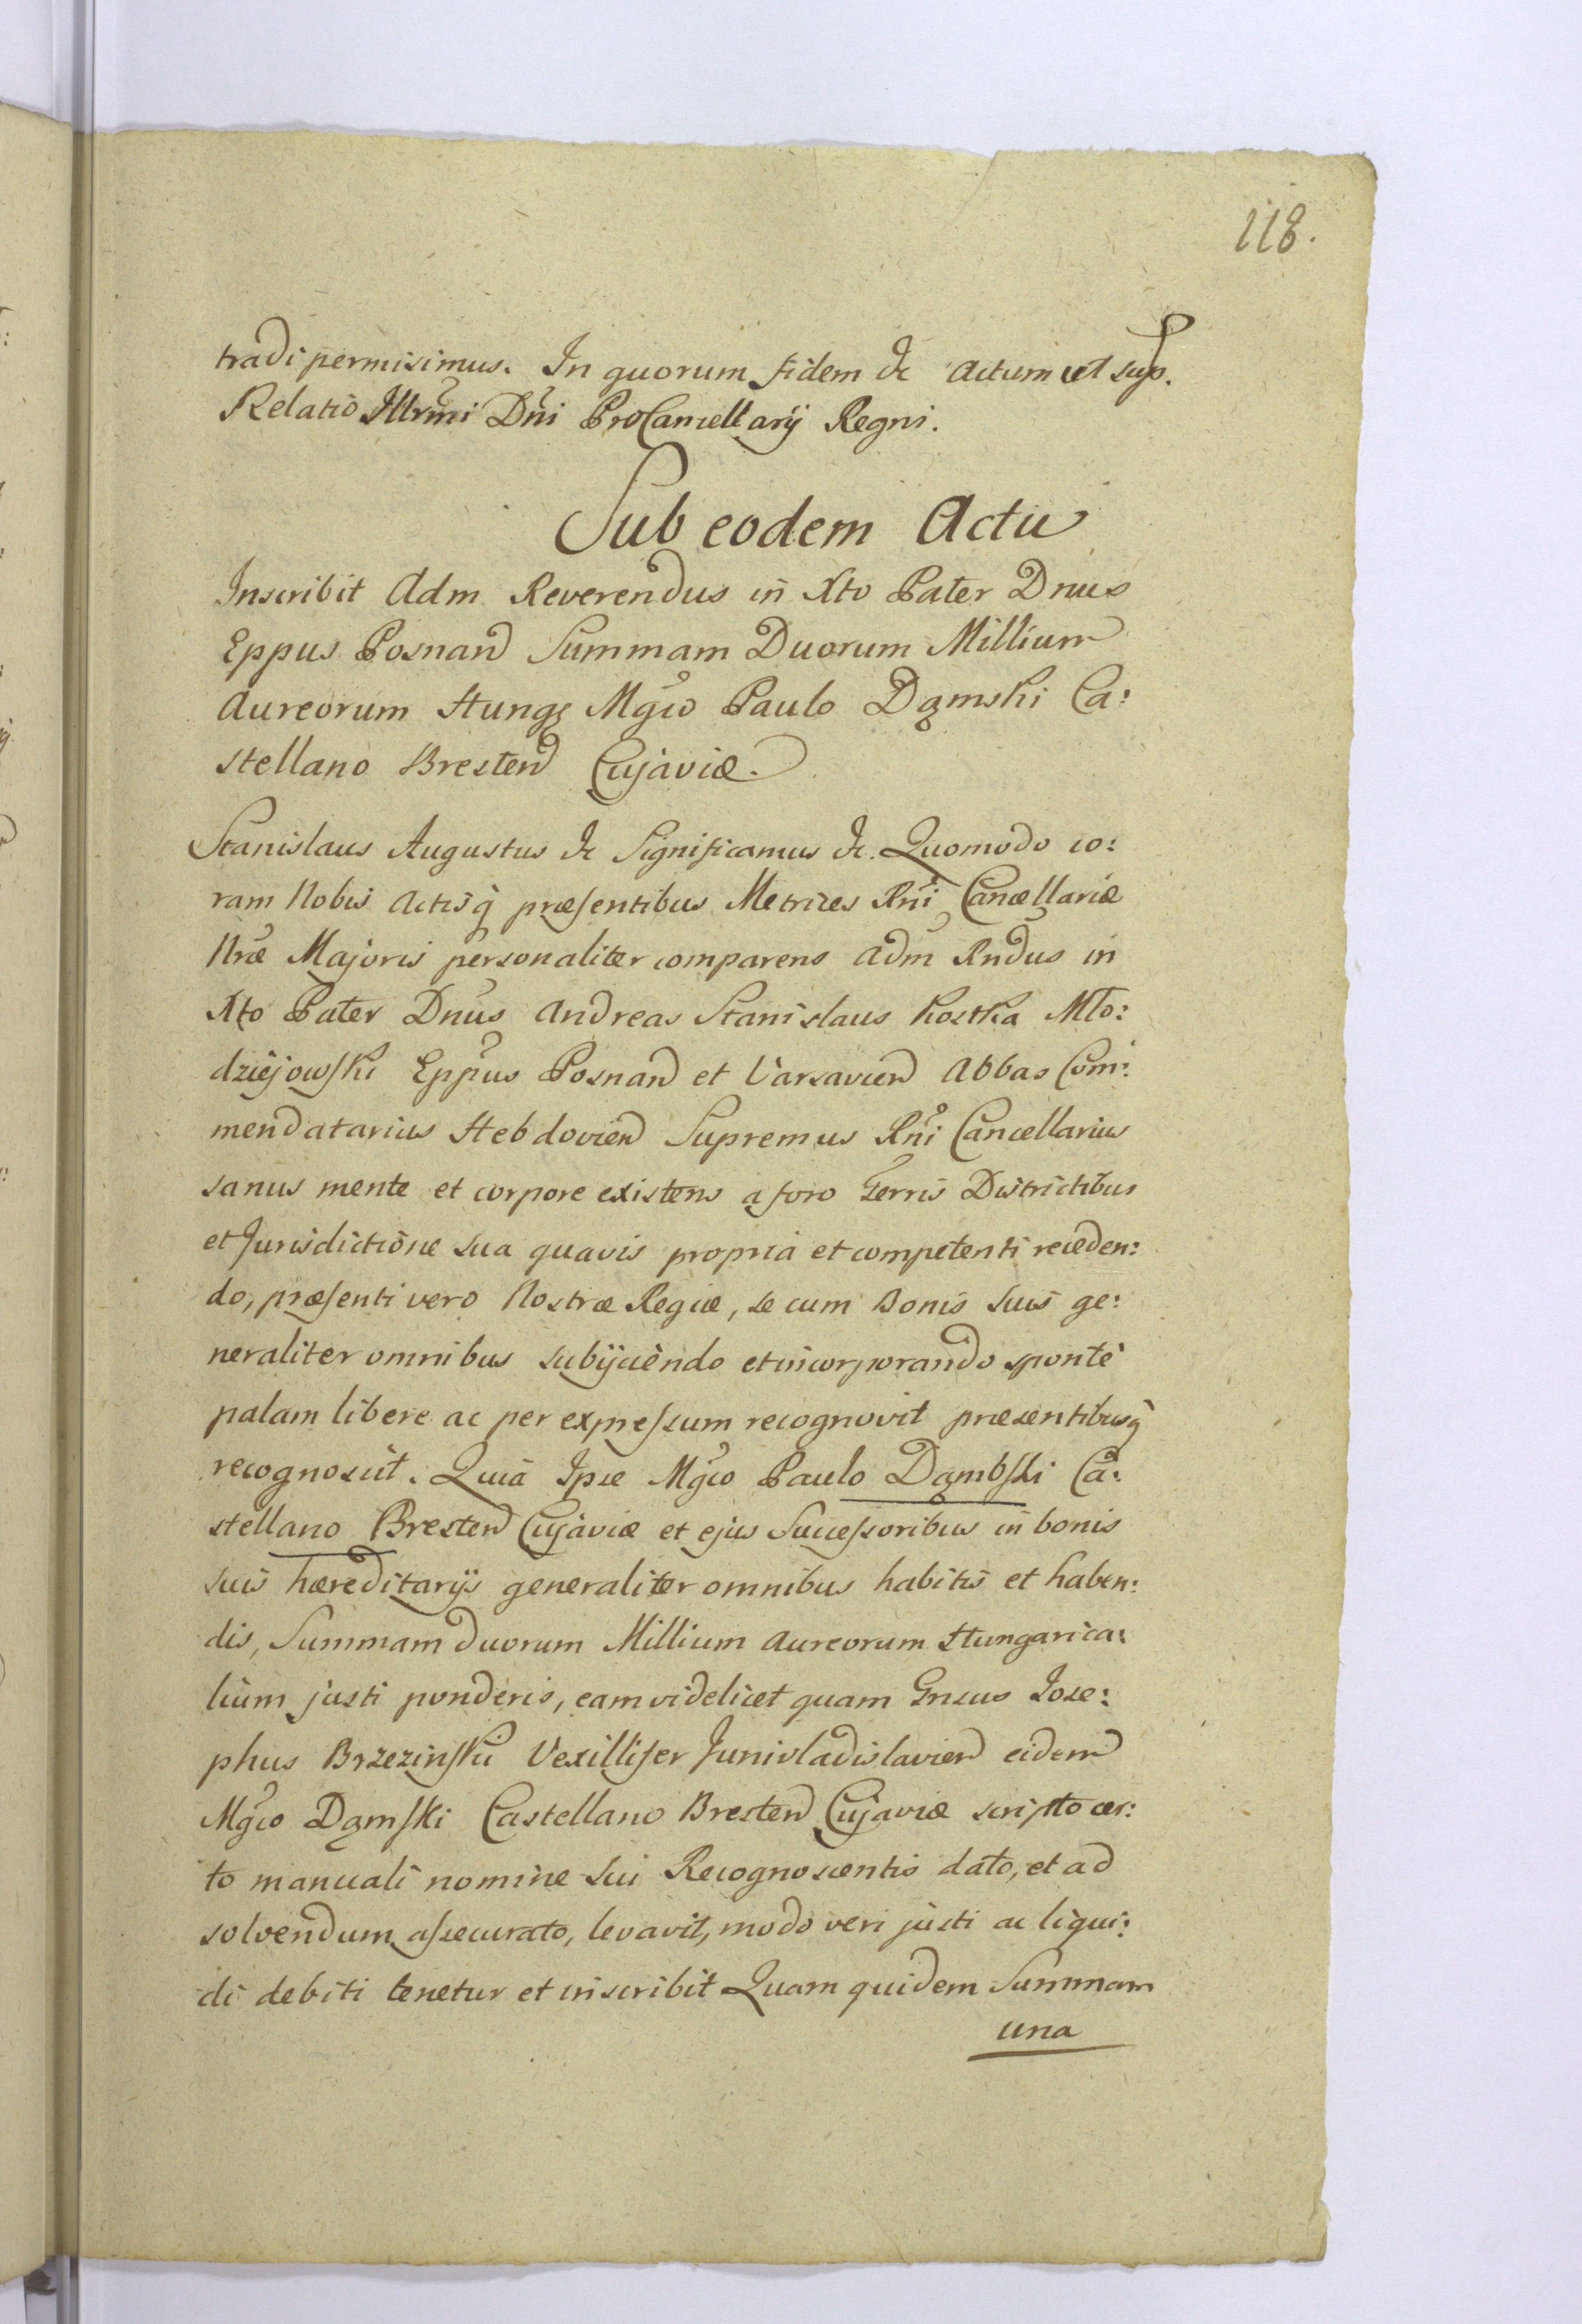 118.
tradi permisimus. In quorum fidem &c Actum ut sup.
Relatio Illrmi Dni ProCancellarij Regni.
Sub eodem Actu
Inscribit Adm Reverendus in Xto Pater Dnus
Eppus Posnan Summam Duorum Millium
Aureorum Hung: Mgco Paulo Dąmski Ca:
stellano Bresten Cujaviæ.
Stanislaus Augustus &c Significamus &c. Quomodo co:
ram Nobis Actisq præsentibus Metrices Rni Cancellariæ
Nræ Majoris personaliter comparens Adm Rndus in
Xto Pater Dnus Andreas Stanislaus Kostka Mło:
dziejowski Eppus Posnan et Varsavien Abbas Com:
mendatarius Hebdovien Supremus Rni Cancellarius
sanus mente et corpore existens a foro Terris Districtibus
et Jurisdictione sua quavis propria et competenti receden:
do, præsenti vero Nostræ Regiæ, se cum Bonis suis ge:
neraliter omnibus subijciendo et incorporando sponte
palam libere ac per expressum recognovit præsentibusq
recognoscit. Quia Ipse Mgco Paulo Dąmbski Ca:
stellano Bresten Cujaviæ et ejus Successoribus in bonis
suis hæreditarijs generaliter omnibus habitis et haben:
dis, Summam duorum Millium Aureorum Hungarica:
lium justi ponderis, eam videlicet quam Gnsus Jose:
phus Brzezinski Vexillifer Junivladislavien eidem
Mgco Dąmski Castellano Bresten Cujaviæ scripto cer:
to manuali nomine sui Recognoscentis dato, et ad
solvendum assecurato, levavit, modo veri justi ac liqui:
di debiti tenetur et inscribit Quam quidem Summam
una